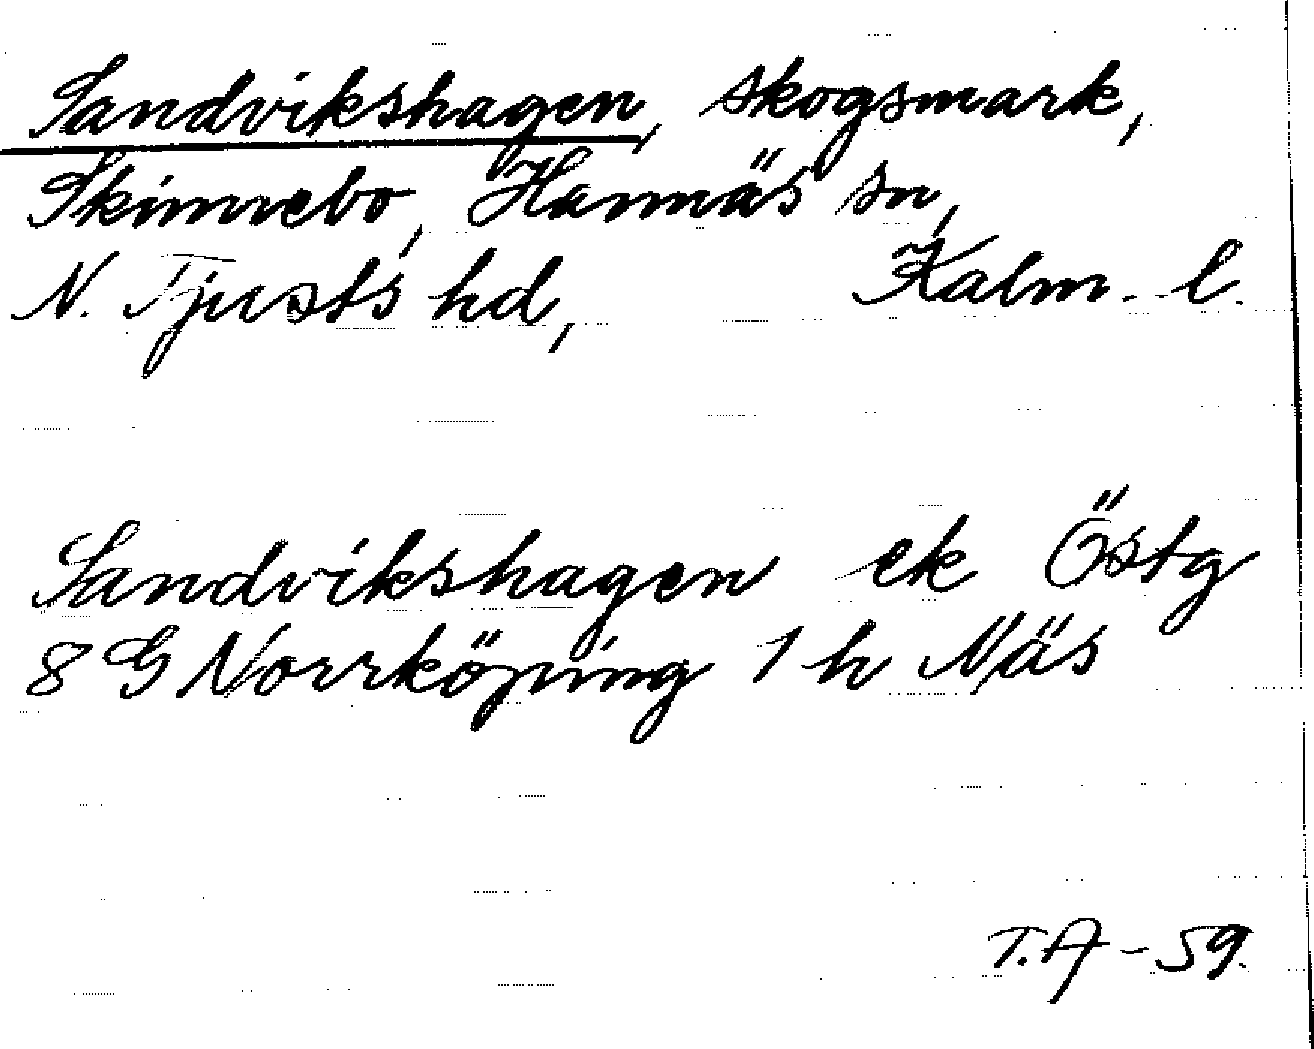 Sandvikshagen, skogsmark,
Skinnebo, Hannäs sn,
N. Tjusts hd, Kalm. l.
Sandvikshagen ek Östg
8 G Norrköping 1 h Näs
T.A - 59.